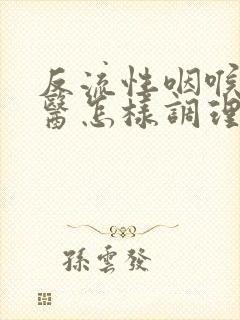 反流性咽喉
醫怎樣調理
孫雲發